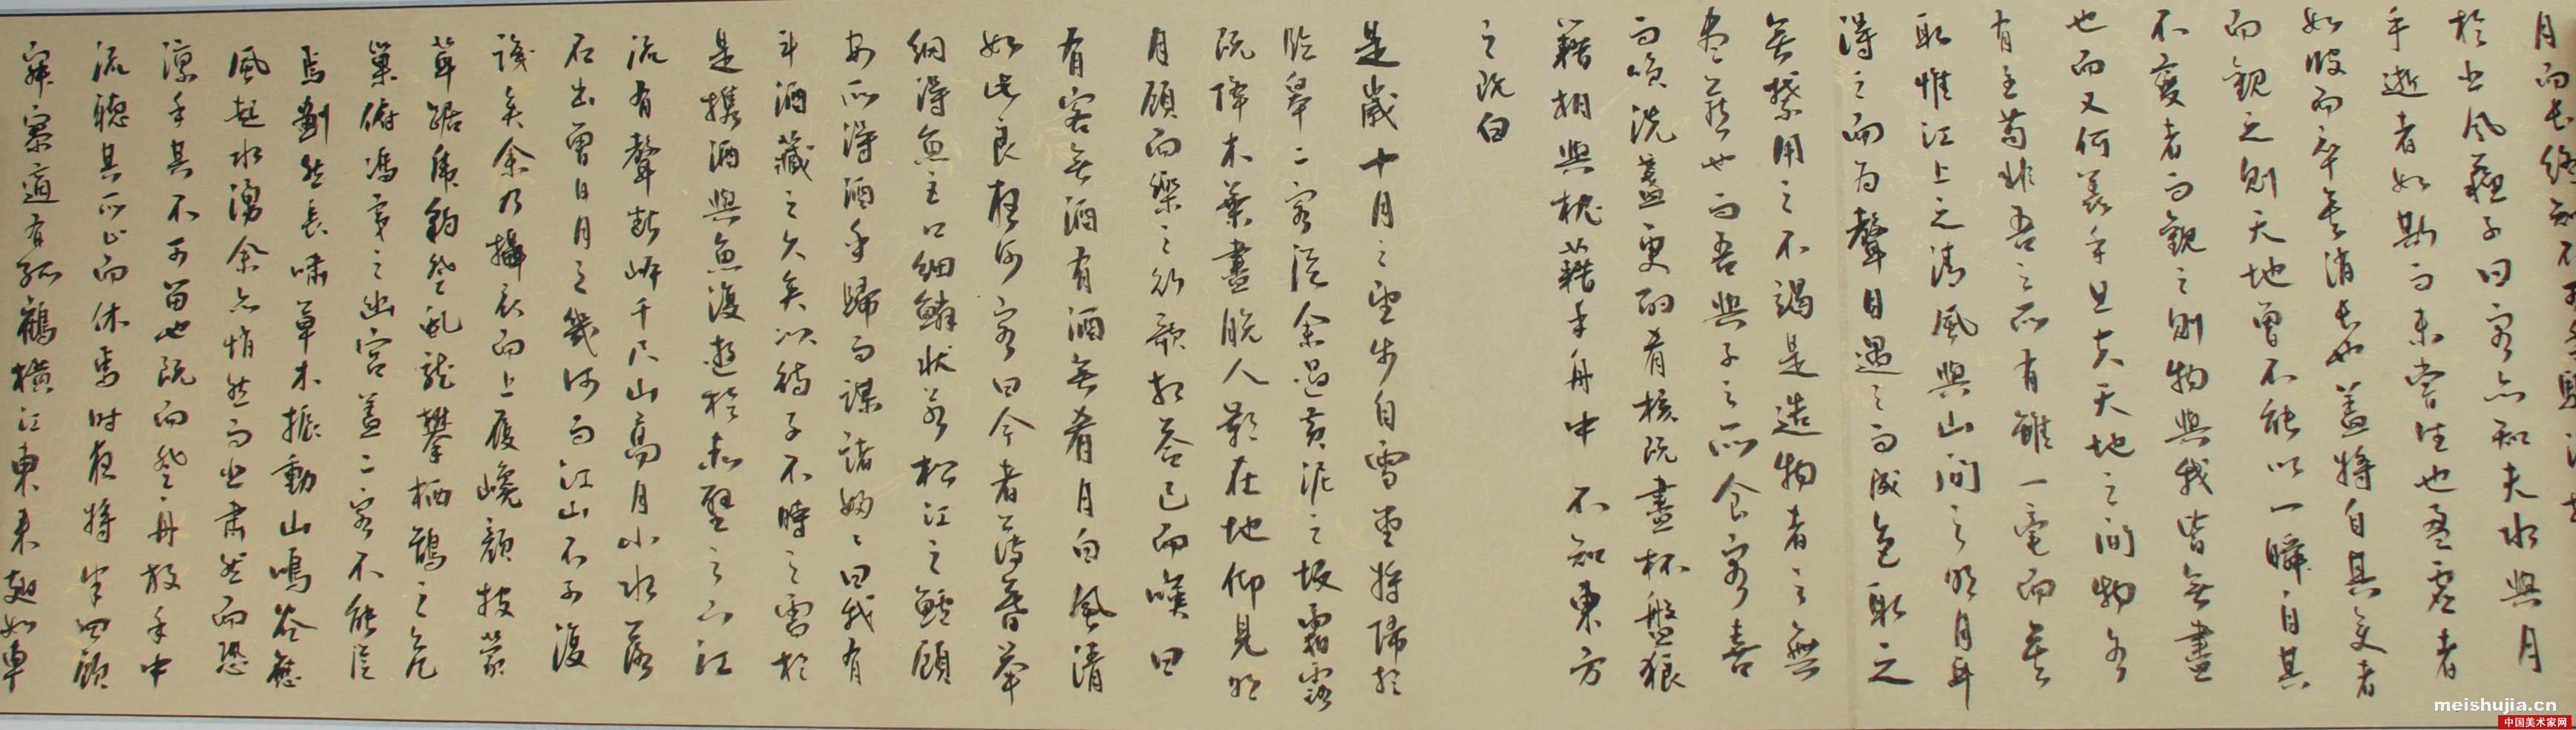 月而長終知不可乎驟得託
於悲風蘇子曰客亦知夫水與月
乎逝者如斯而未嘗往也盈虛者
如彼而卒莫消長也蓋將自其變者
而觀之則天地曾不能以一瞬自其
不變者而觀之則物與我皆無盡
也而又何羨乎且夫天地之間物各
有主苟非吾之所有雖一毫而莫
取惟江上之清風與山間之明月耳
得之而為聲目遇之而成色取之
無禁用之不竭是造物者之無
盡藏也而吾與子之所食客喜
而笑洗盞更酌肴核既盡杯盤狼
藉相與枕藉乎舟中不知東方
之既白
是歲十月之望步自雪堂將歸於
臨皋二客從余過黃泥之坂霜露
既降木葉盡脫人影在地仰見明
月顧而樂之行歌相答已而嘆曰
有客無酒有酒無肴月白風清
如此良夜何客曰今者薄暮舉
網得魚巨口細鱗狀若松江之鱸顧
安所得酒乎歸而謀諸婦婦曰我有
斗酒藏之久矣以待子不時之需於
是攜酒與魚復遊於赤壁之下江
流有聲斷岸千尺山高月小水落
石出曾日月之幾何而江山不可復
識矣余乃攝衣而上履巉巖披蒙
茸踞虎豹登虬龍攀栖鶻之危
巢俯馮夷之幽宮蓋二客不能從
焉劃然長嘯草木振動山鳴谷應
風起水湧余亦悄然而悲肅然而恐
凜乎其不可留也既而登舟放乎中
流聽其所止而休焉時夜將半四顧
寂寥適有孤鶴橫江東來翅如車
meishujia.cn
中国美术家网